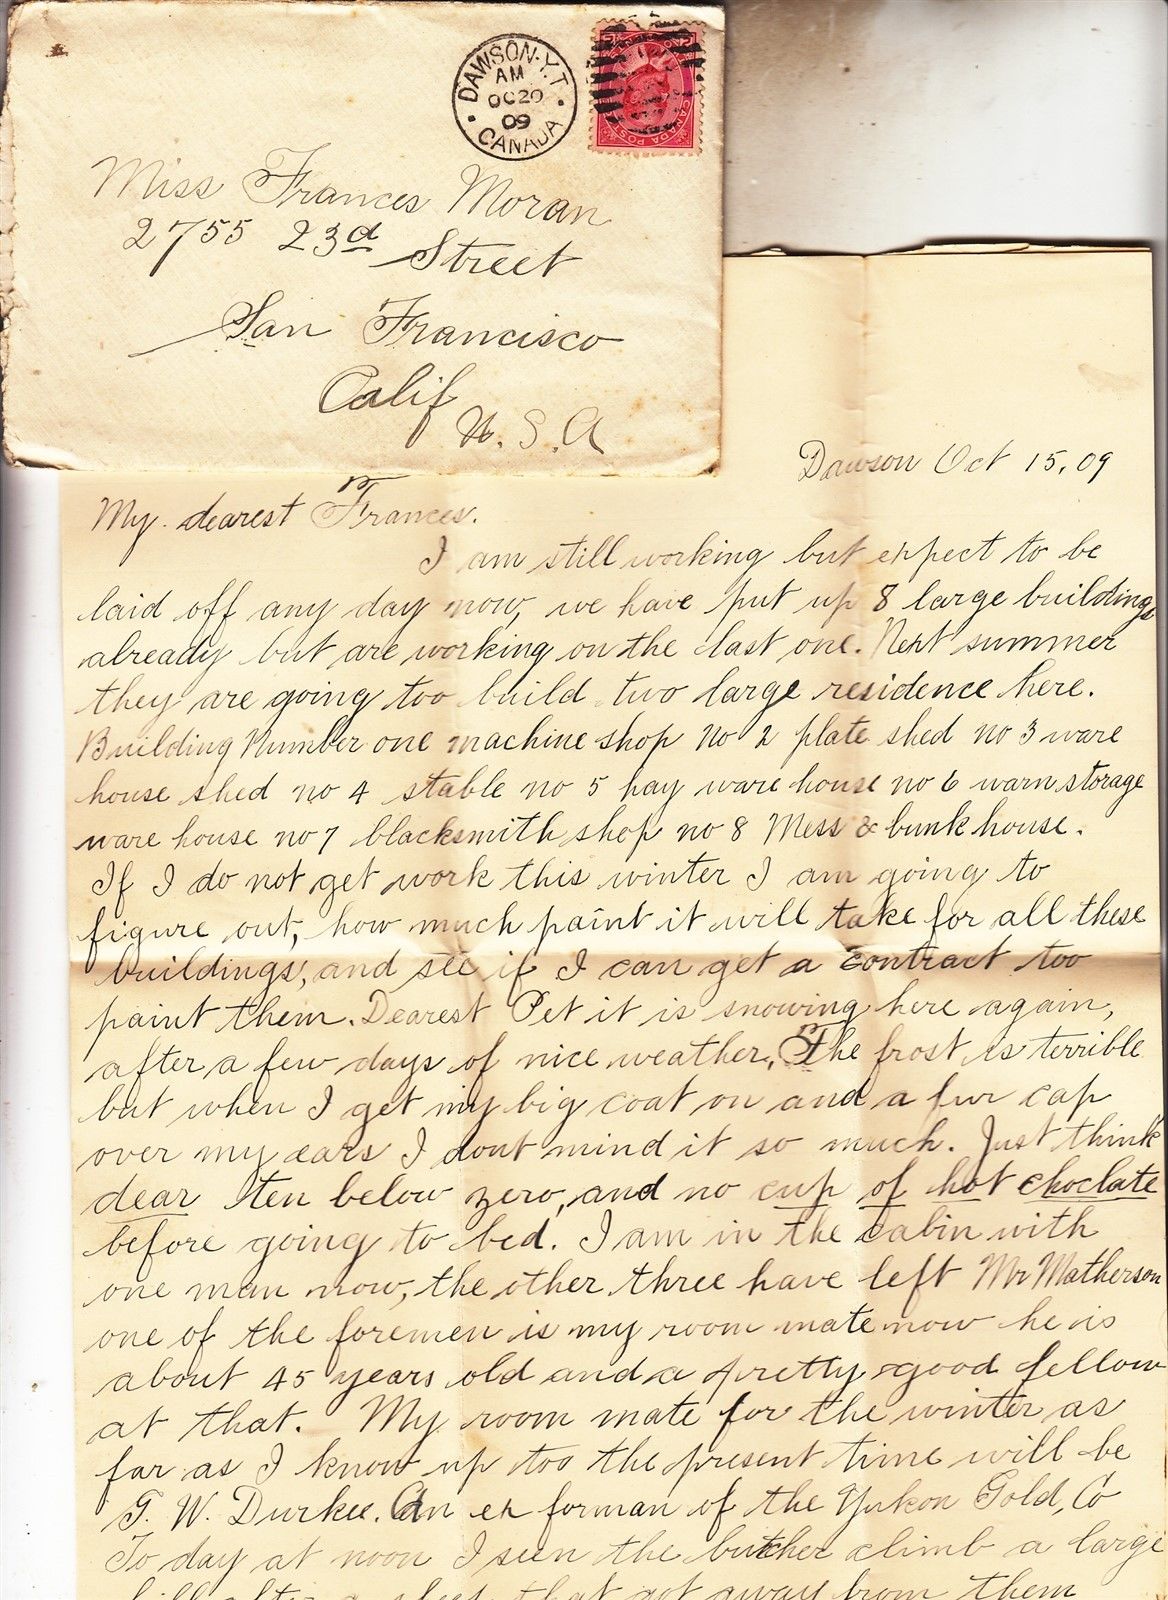 DAWSON·Y.T.
AM
OC 20
09
CANADA
CANADA POSTAGE
Miss Frances Moran
2755 23d Street
San Francisco
Calif
U.S.A
Dawson Oct 15, 09
My dearest Frances.
I am still working but expect to be
laid off any day now, we have put up 8 large buildings
already but are working on the last one. Next summer
they are going too build two large residence here.
Building Number one machine shop No 2 plate shed no 3 ware
house shed no 4 stable no 5 hay ware house no 6 warm storage
ware house no 7 blacksmith shop no 8 Mess & bunk house.
If I do not get work this winter I am going to
figure out, how much paint it will take for all these
buildings, and see if I can get a contract too
paint them. Dearest Pet it is snowing here again,
after a few days of nice weather, The frost is terrible
but when I get my big coat on and a fur cap
over my ears I dont mind it so much. Just think
dear ten below zero, and no cup of hot choclate
before going to bed. I am in the cabin with
one man now, the other three have left Mr Matherson
one of the foremen is my room mate now he is
about 45 years old and a pretty good fellow
at that. My room mate for the winter as
far as I know up too the present time will be
T. W. Durkee. An ex forman of the Yukon Gold, Co
To day at noon I seen the butcher climb a large
hill after a sheep that got away from them